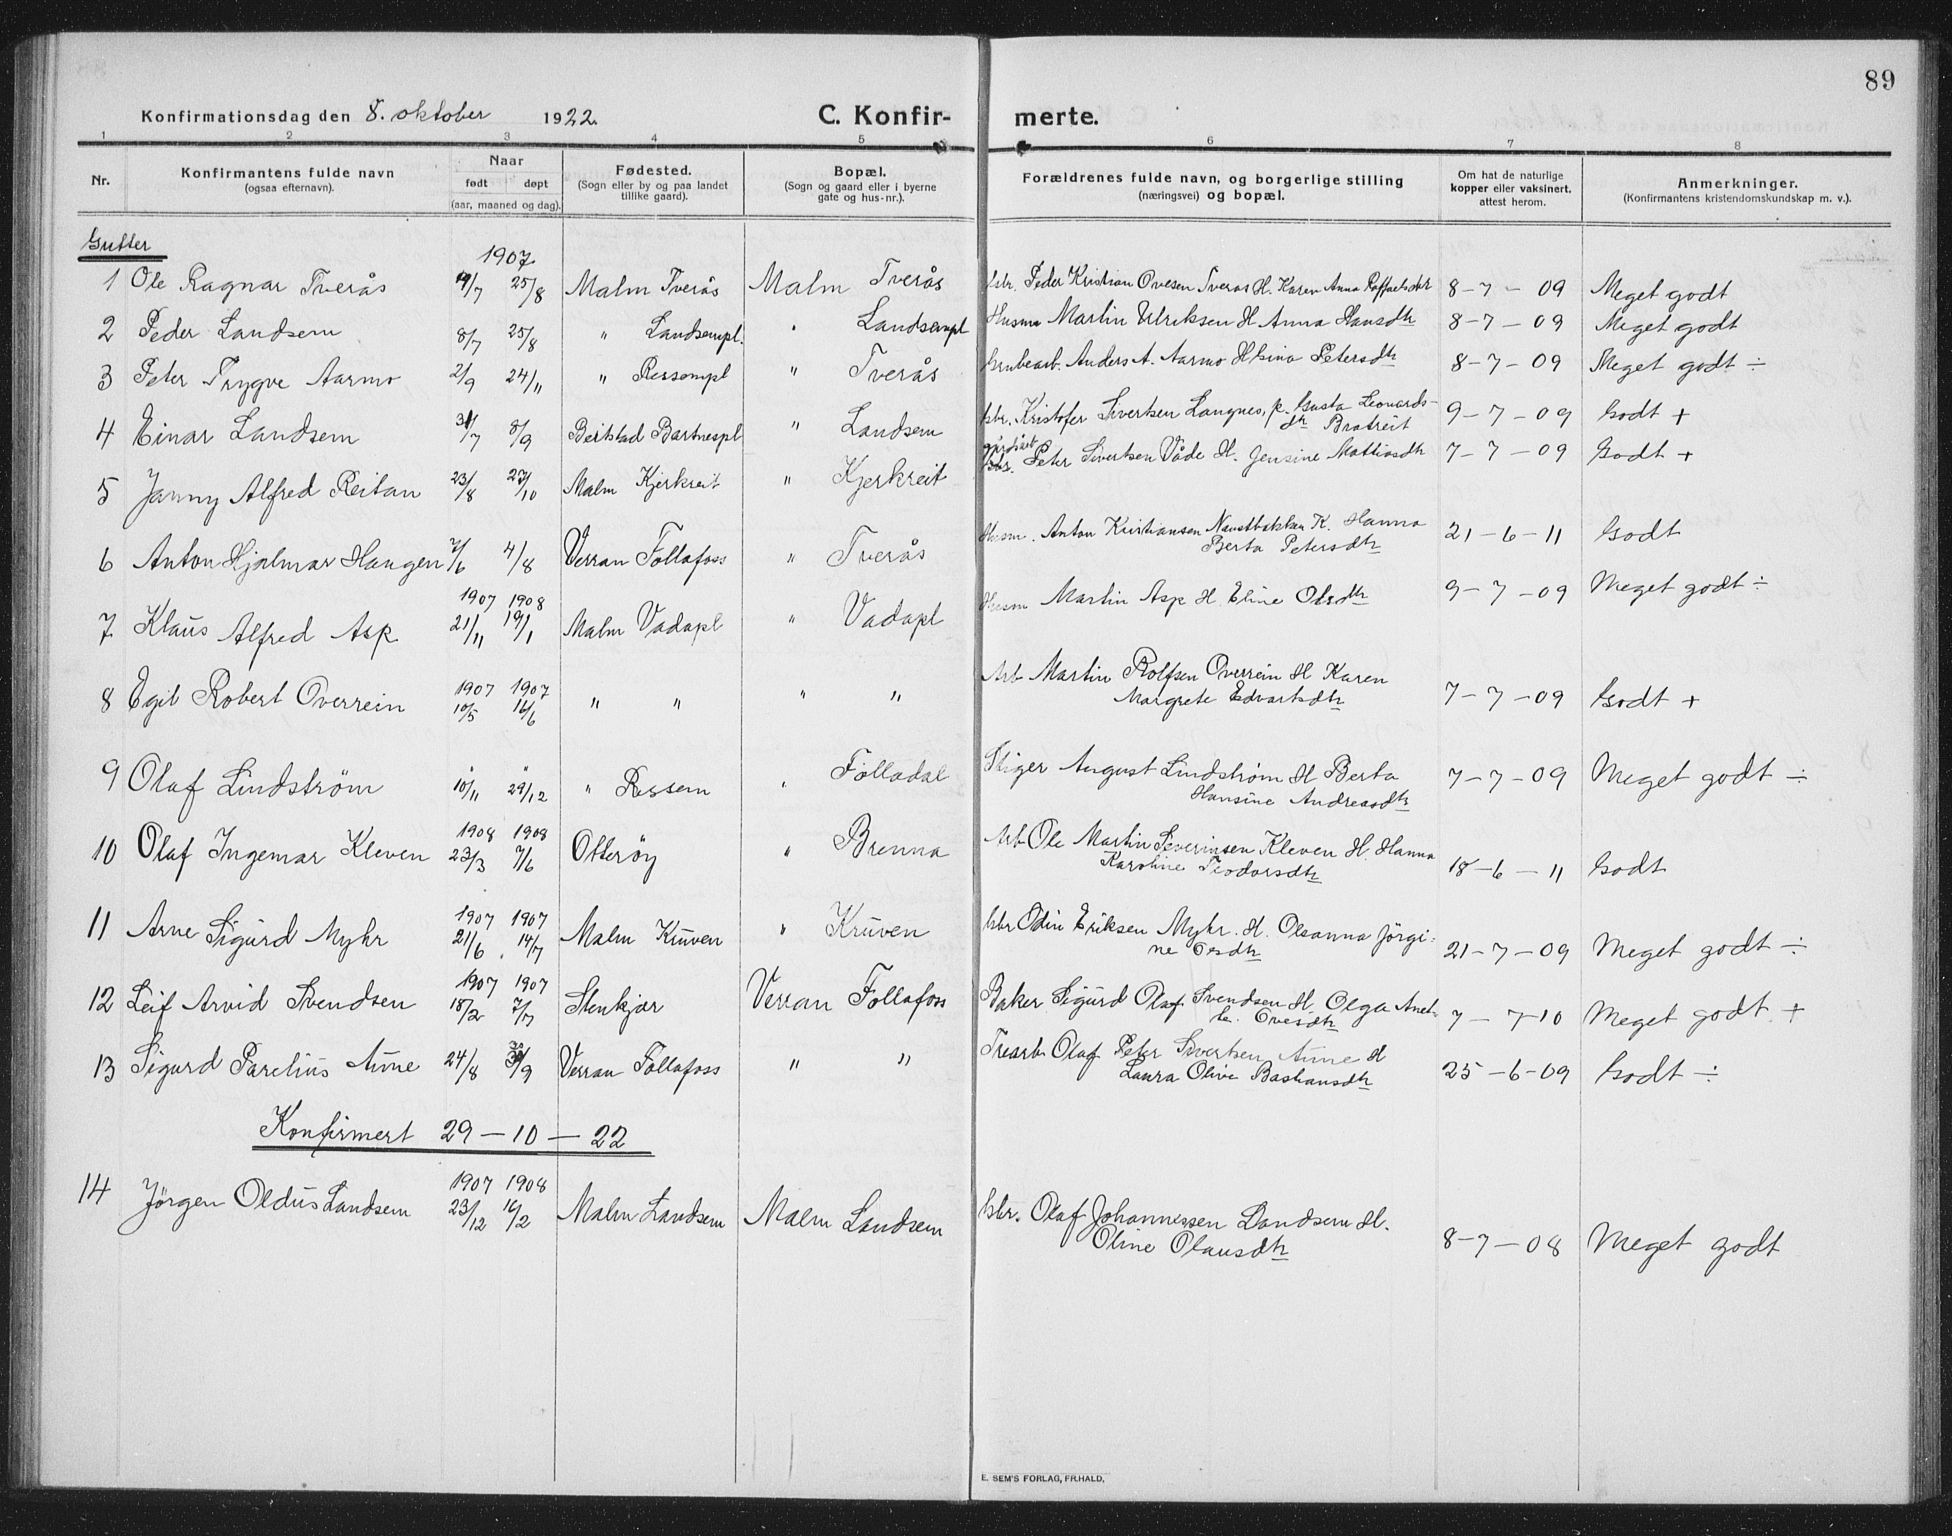 89
Konfirmationsdag den 8. oktober 1922. C. Konfir- merte.
1 2 3 4 5 6 7 8
Nr. Konfirmantens fulde navn (ogsaa efternavn). Naar født døpt (aar, maaned og dag). Fødested. (Sogn eller by og paa landet tillike gaard). Bopæl. (Sogn og gaard eller i byerne gate og hus-nr.). Forældrenes fulde navn, og borgerlige stilling (næringsvei) og bopæl. Om hat de naturlige kopper eller vaksinert, attest herom. Anmerkninger. (Konfirmantens kristendomskundskap m. v.).
Gutter
1907
1 Ole Ragnar Tverås 4/7 25/8 Malm Tverås Malm Tverås Peder Kristian Ovesen Tverås H. Karen Anna 8-7-09 Meget godt
2 Peder Landsem 8/7 25/8 " Landsempl. " Landsempl Husm Martin Ulriksen H Anna Hansdtr 8-7-09 Meget godt
3 Peter Trygve Aarmo 2/9 24/11 " Ressempl " Tverås Anders A. Aarmo Petersdtr 8-7-09 Meget godt ÷
4 Einar Landsem 31/7 8/9 Beitstad Bartnespl " Landsem Kristofer Sivertsen Langnes, p. Gusta Leonards-
dtr Bratreit 9-7-09 Godt +
5 Janny Alfred Reitan 23/8 27/10 Malm Kjerkreit " Kjerkreit Peter Sivertsen Våde H. Jensine Mattiasdtr 7-7-09 Godt +
6 Anton Hjalmar Haugen 7/6 4/8 Verran Follafoss " Tverås Husm. Anton Kristiansen Naustbakken K. Hanna
Berta Petersdtr 21-6-11 Godt
1907 1908
7 Klaus Alfred Asp 21/11 19/1 Malm Vadapl " Vadapl Husm Martin Asp H. Eline Olsdtr 9-7-09 Meget godt ÷
1907 1907
8 Egil Robert Overrein 10/5 16/6 " " " " Arb Martin Rolfsen Overrein H Karen
Margrete Edvartsdtr 7-7-09 Godt +
" "
9 Olaf Lindström 10/11 29/12 " Ressem " Folladal Stiger August Lindstrøm H Berta
Hansine Andreasdtr 7-7-09 Meget godt ÷
1908 1908
10 Olaf Ingemar Kleven 23/3 7/6 Otterøy " Brenna Arb Ole Martin Severinsen Kleven H. Hanna
Karoline Teodorsdtr 18-6-11 Godt
1907 1907
11 Arne Sigurd Myhr 21/6 14/7 Malm Kruven " Kruven Gbr Odin Eriksen Myhr. H. Olsanna Jørgi-
ne 21-7-09 Meget godt ÷
1907 1907
12 Leif Arvid Svendsen 18/2 7/7 Stenkjær Verran Follafoss Baker Sigurd Olaf Svendsen H. Olga Anet-
te Ovesdtr 7-7-10 Meget godt +
13 Sigurd Parelius Aune 24/8 /9 Verran Follafoss " " Træarb Olaf Peter Sivertsen Aune H
Laura Olive Bastiansdtr 25-6-09 Godt ÷
Konfirmert 29-10-22
1907 1908
14 Jörgen Oldus Landsem 23/12 16/2 Malm Landsem Malm Landsem Gbr. Olaf Johannessen Landsem H.
Oline Olausdtr 8-7-08 Meget godt
E. SEM'S FORLAG, FR.HALD.